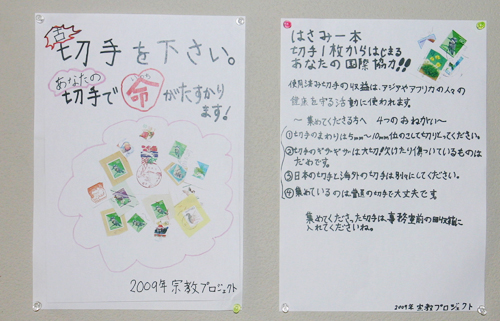 古切手を下さい。
あなたの
切手で命がたすかり
ます!
2009年宗教プロジェクト
はさみ一本
切手1枚からはじまる
あなたの国際協力!!
使用済み切手の収益は、アジアやアフリカの人々の
健康を守る活動に使われます。
〜集めてくださる方へ 4つのおねがい〜
①切手のまわりは5mm〜10mm位のこして切りとってください。
②切手のギザギザは大切!欠けたり傷ついているものは
だめです。
③日本の切手と海外の切手は別々にしてください。
④集めているのは普通の切手で大丈夫です
集めてくださった切手は、事務室前の回収箱に
入れてくださいね。
2009年宗教プロジェクト